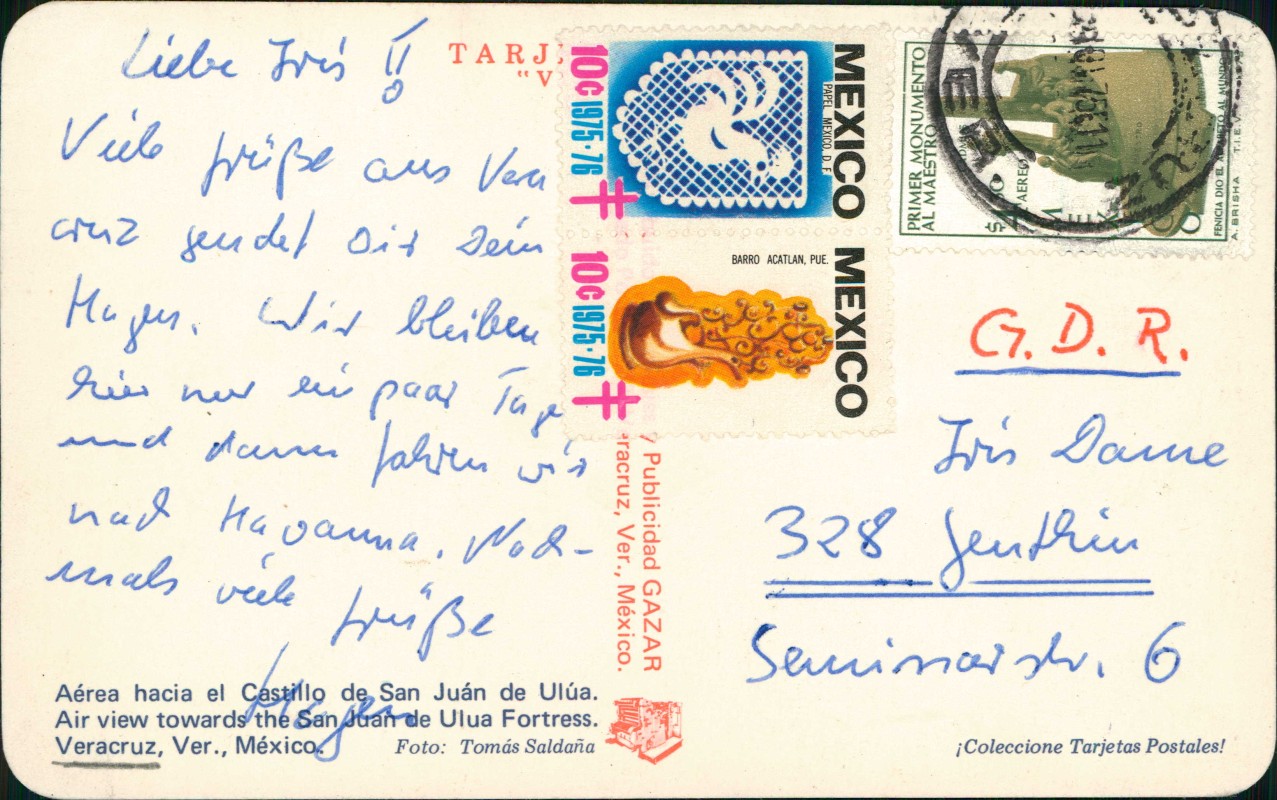 Liebe Iris !!
Viele Grüße aus Vera
cruz sendet Dir Dein
Hagen. Wir bleiben
hier nur ein paar Tage
und dann fahren wir
nach Havanna. Noch-
mals viele Grüße
Hagen
Aérea hacia el Castillo de San Juán de Ulúa.
Air view towards the San Juan de Ulua Fortress.
Veracruz, Ver., México.
Foto: Tomás Saldaña
TARJE
"V
y Publicidad GAZAR
eracruz, Ver., México.
MEXICO
PAPEL MEXICO, D. F.
10¢ 1975-76
MEXICO
BARRO ACATLAN, PUE.
10¢ 1975-76
PRIMER MONUMENTO
AL MAESTRO
AEREO
FENICIA DIO EL ALFABETO AL MUNDO
A. BRISHA T.I.E.V.
VER.
G.D.R.
Iris Damme
328 Genthin
Seminarstr. 6
¡Coleccione Tarjetas Postales!